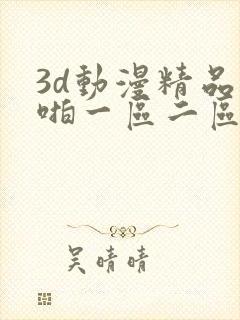 3d動漫精品
啪一區二區
吴晴晴